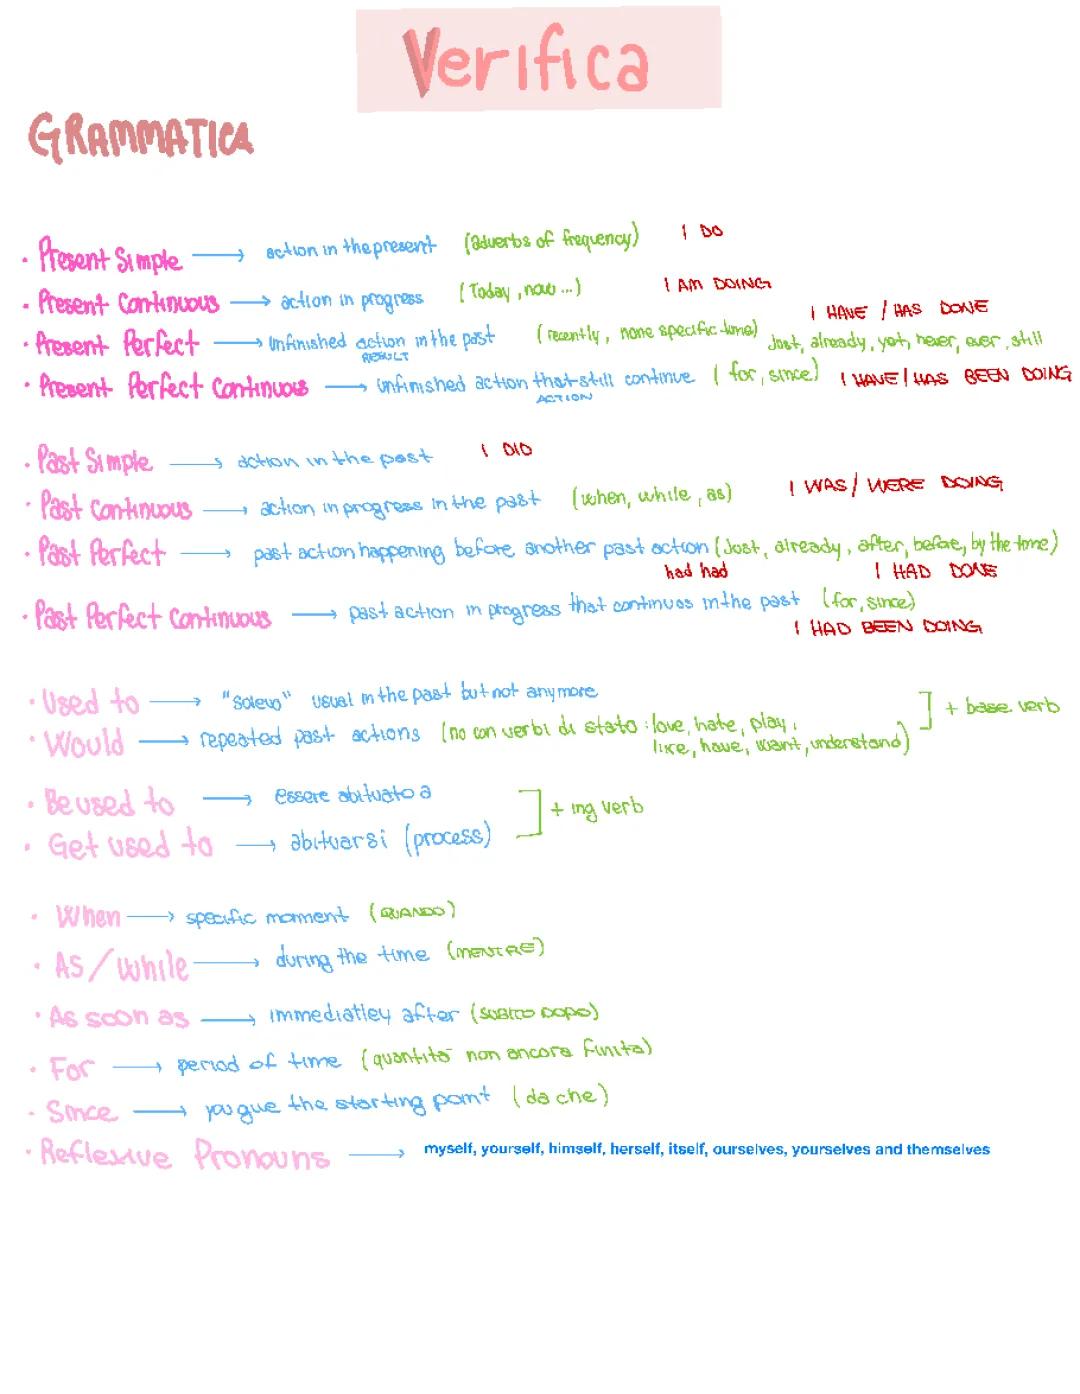 Verifica
GRAMMATICA
· Present Simple → action in the present (adverbs of frequency) I DO
· Present Continuous → action in progress (Today, now...) I AM DOING
I HAVE / HAS DONE
· Present Perfect → Unfinished action in the past (recently, none specific time) Just, already, yet, never, ever, still
RESULT
· Present Perfect Continuous → unfinished action that still continue (for, since) I HAVE/HAS BEEN DOING
ACTION
· Past Simple → action in the past I DID
· Past Continuous → action in progress in the past (when, while, as) I WAS/WERE DOING
· Past Perfect → past action happening before another past action (Just, already, after, before, by the time)
had had I HAD DONE
· Past Perfect Continuous → past action in progress that continuos in the past (for, since)
I HAD BEEN DOING
· Used to → "solevo" usual in the past but not anymore
+ base verb
· Would → repeated past actions (no con verbi di stato: love, hate, play,
like, have, want, understand)
· Be used to → essere abituato a
+ ing verb
· Get used to → abituarsi (process)
· When → specific moment (QUANDO)
· AS/While → during the time (MENTRE)
· As soon as → immediatley after (SUBITO DOPO)
· For → period of time (quantità non ancora finita)
· Since → you give the starting point (da che)
· Reflexive Pronouns → myself, yourself, himself, herself, itself, ourselves, yourselves and themselves